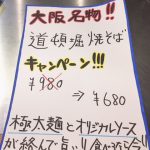 大阪名物!!
道頓堀焼そば
キャンペーン!!!
¥980
⇒¥680
極太麺とオリジナルソース
が絡んで旨い!!食べなら今!!